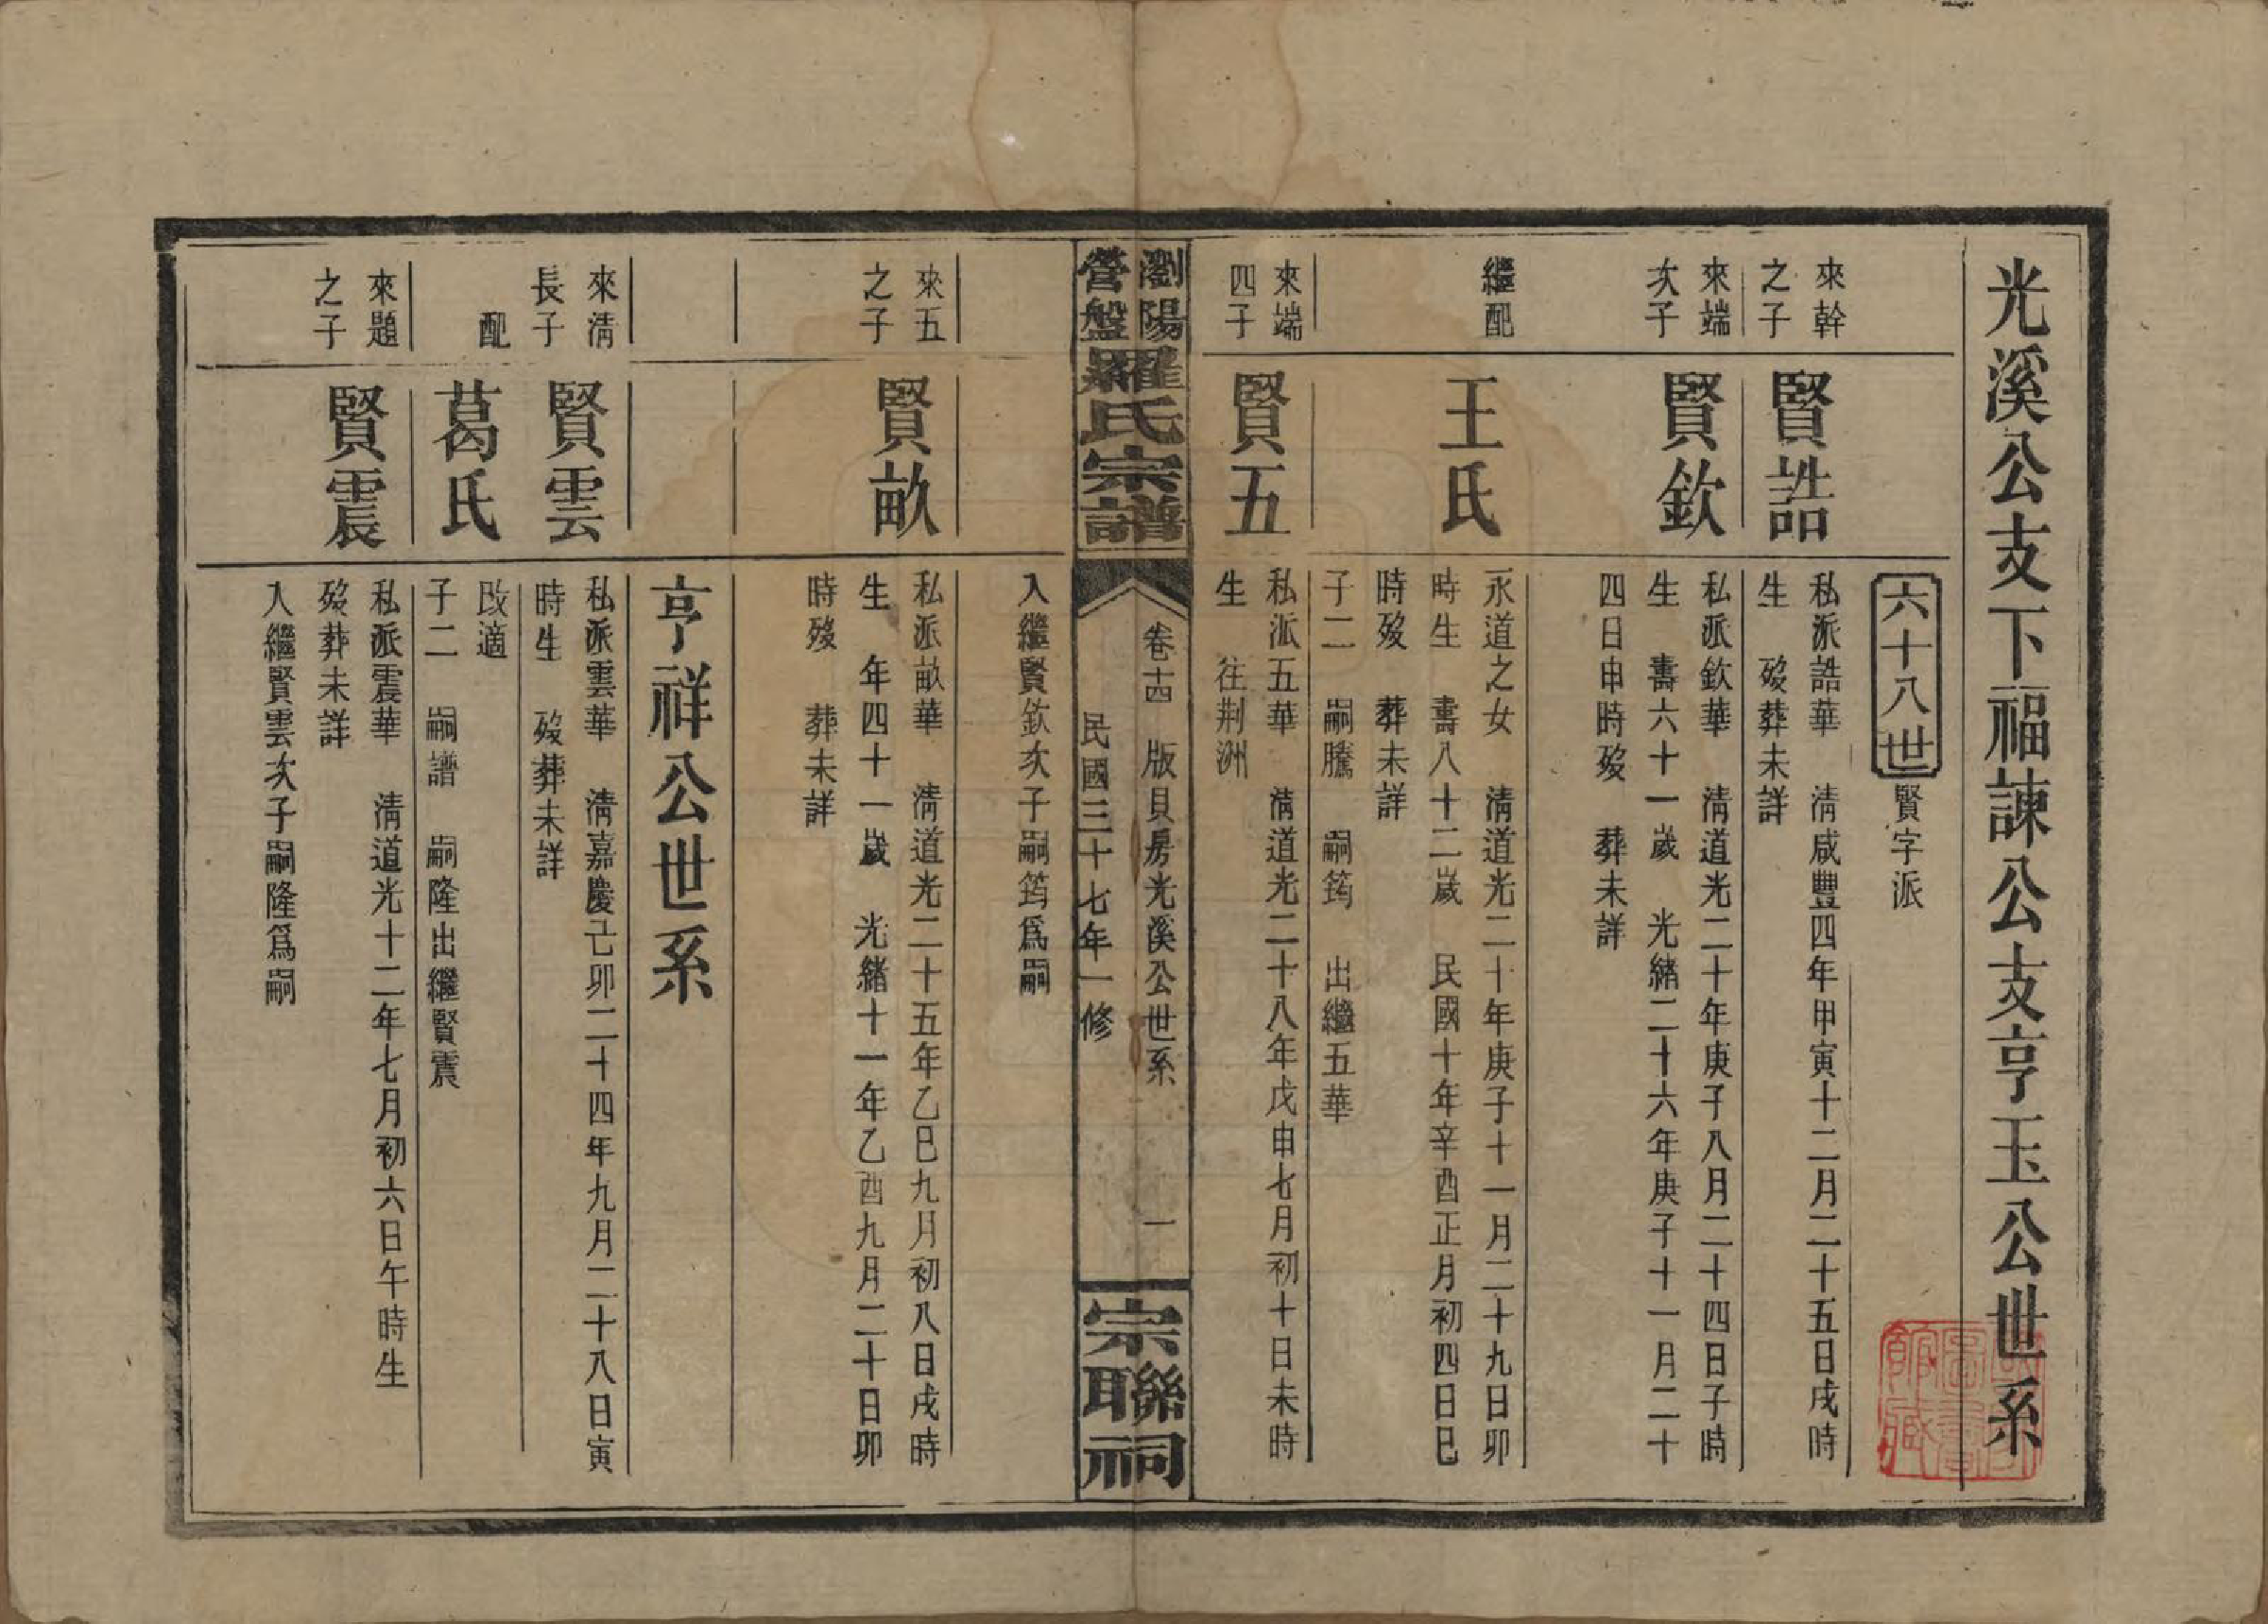 光溪公支下福諫公支亨玉公世系
六十八世
賢字派
來幹
之子
賢誥
私派誥華　清咸豐四年甲寅十二月二十五日戌時
生　歿葬未詳
來端
次子
賢欽
私派欽華　清道光二十年庚子八月二十四日子時
生　壽六十一歲　光緒二十六年庚子十一月二十
四日申時歿　葬未詳
繼配
王氏
永道之女　清道光二十年庚子十一月二十九日卯
時生　壽八十二歲　民國十年辛酉正月初四日巳
時歿　葬未詳
子二　嗣騰　嗣筠　出繼五華
來端
四子
賢五
私派五華　清道光二十八年戊申七月初十日未時
生　往荆洲
瀏陽
營盤
羅氏宗譜
卷十四　版貝房光溪公世系　一
民國三十七年一修
宗聯祠
入繼賢欽次子嗣筠爲嗣
來五
之子
賢畝
私派畝華　清道光二十五年乙巳九月初八日戌時
生　年四十一歲　光緒十一年乙酉九月二十日卯
時歿　葬未詳
亨祥公世系
來清
長子
賢雲
私派雲華　清嘉慶己卯二十四年九月二十八日寅
時生　歿葬未詳
配
葛氏
改適
子二　嗣譜　嗣隆出繼賢震
來題
之子
賢震
私派震華　清道光十二年七月初六日午時生
歿葬未詳
入繼賢雲次子嗣隆爲嗣